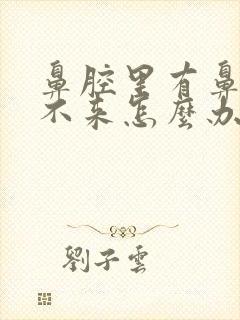 鼻腔里有鼻
不来怎麼办
劉子雲